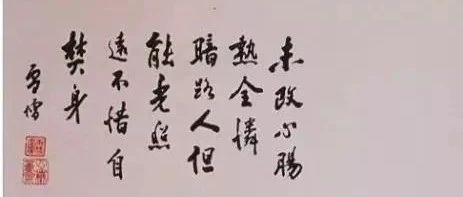 未改心腸
熱全憐
暗路人但
能光照
遠不惜自
焚身
雪堂